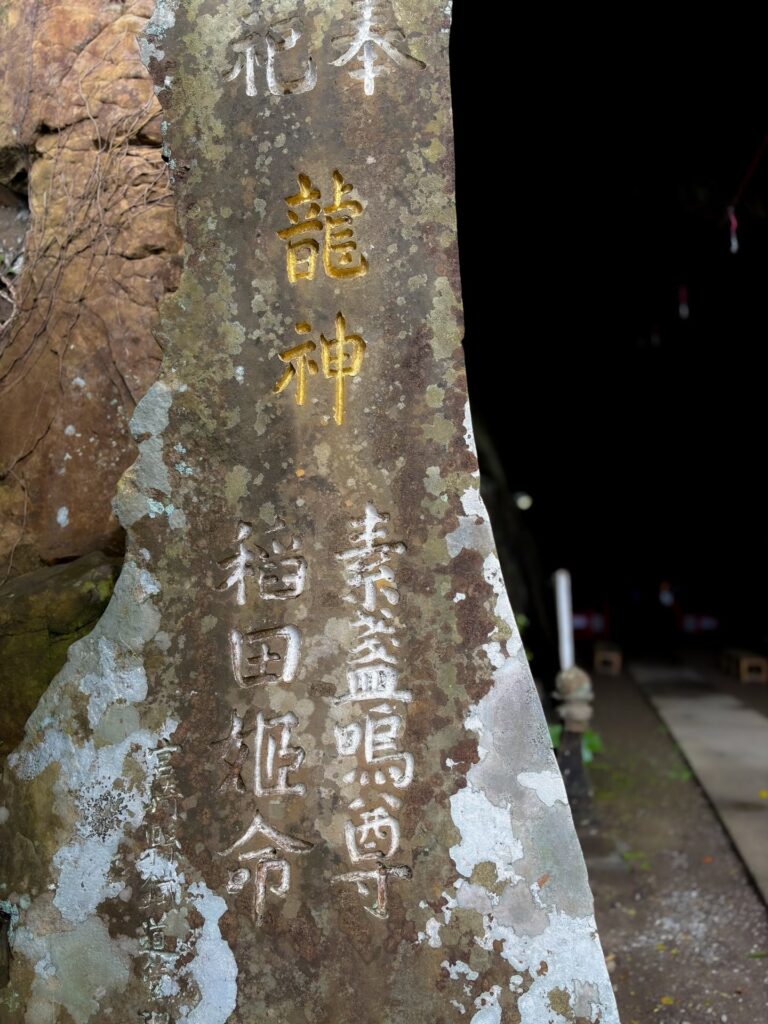 奉祀
龍神
素盞嗚尊
稲田姫命